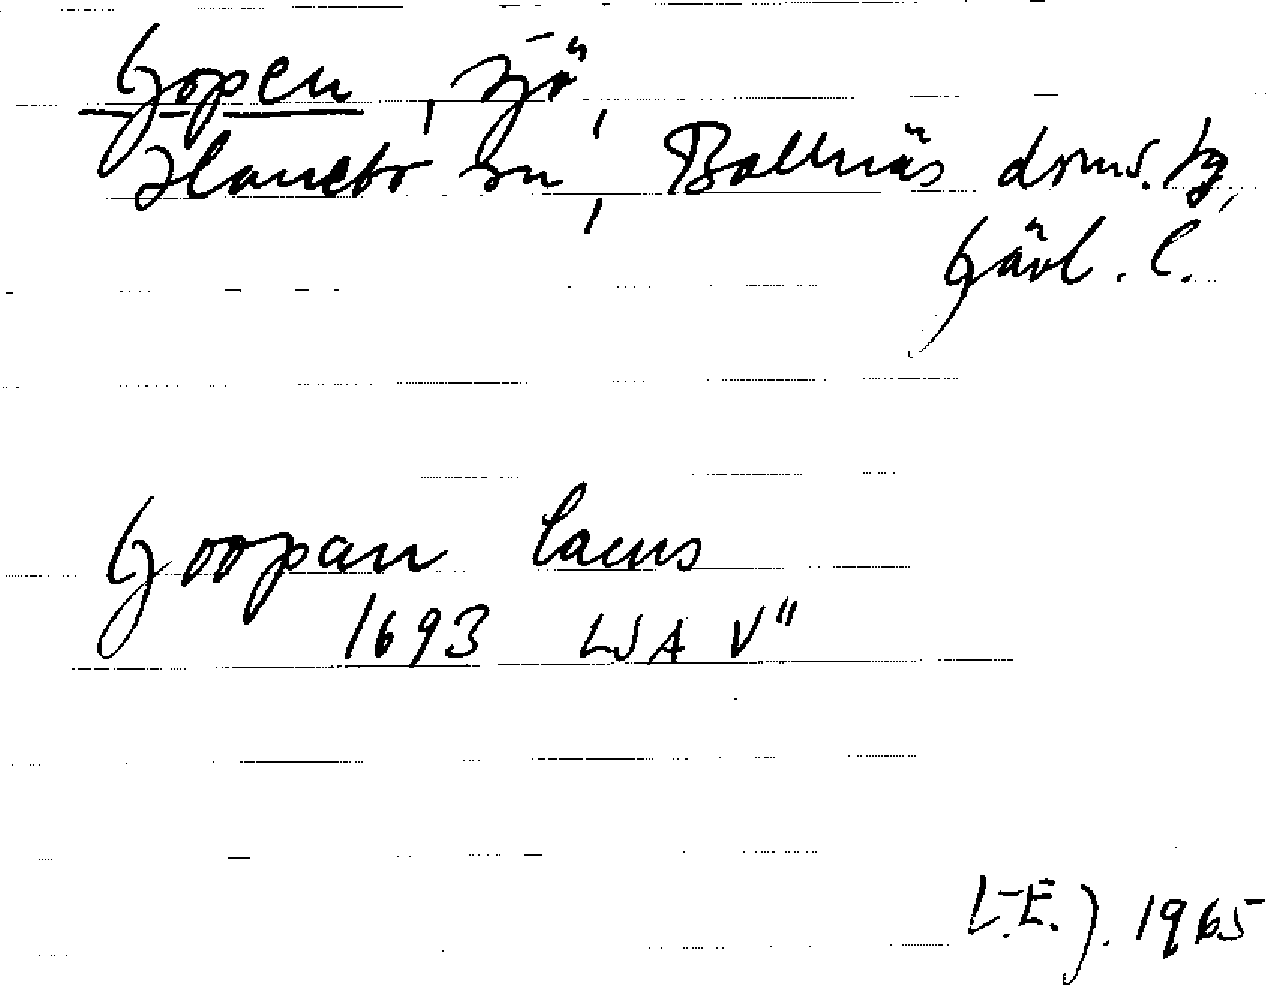 Gopen, sjö,
Hanebo sn, Bollnäs doms. hg,
Gävl. l.
Goopan lacus
1693 LSA V"
L.E.J. 1965